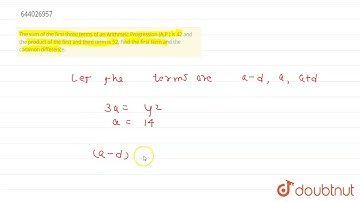 644026957
The sum of the first three terms of an Arithmetic Progression (A.P.) is 42 and
the product of the first and third term is 52. Find the first term and the
common difference.
Let the terms are a-d, a, a+d
3a = 42
a = 14
(a-d)
doubtnut